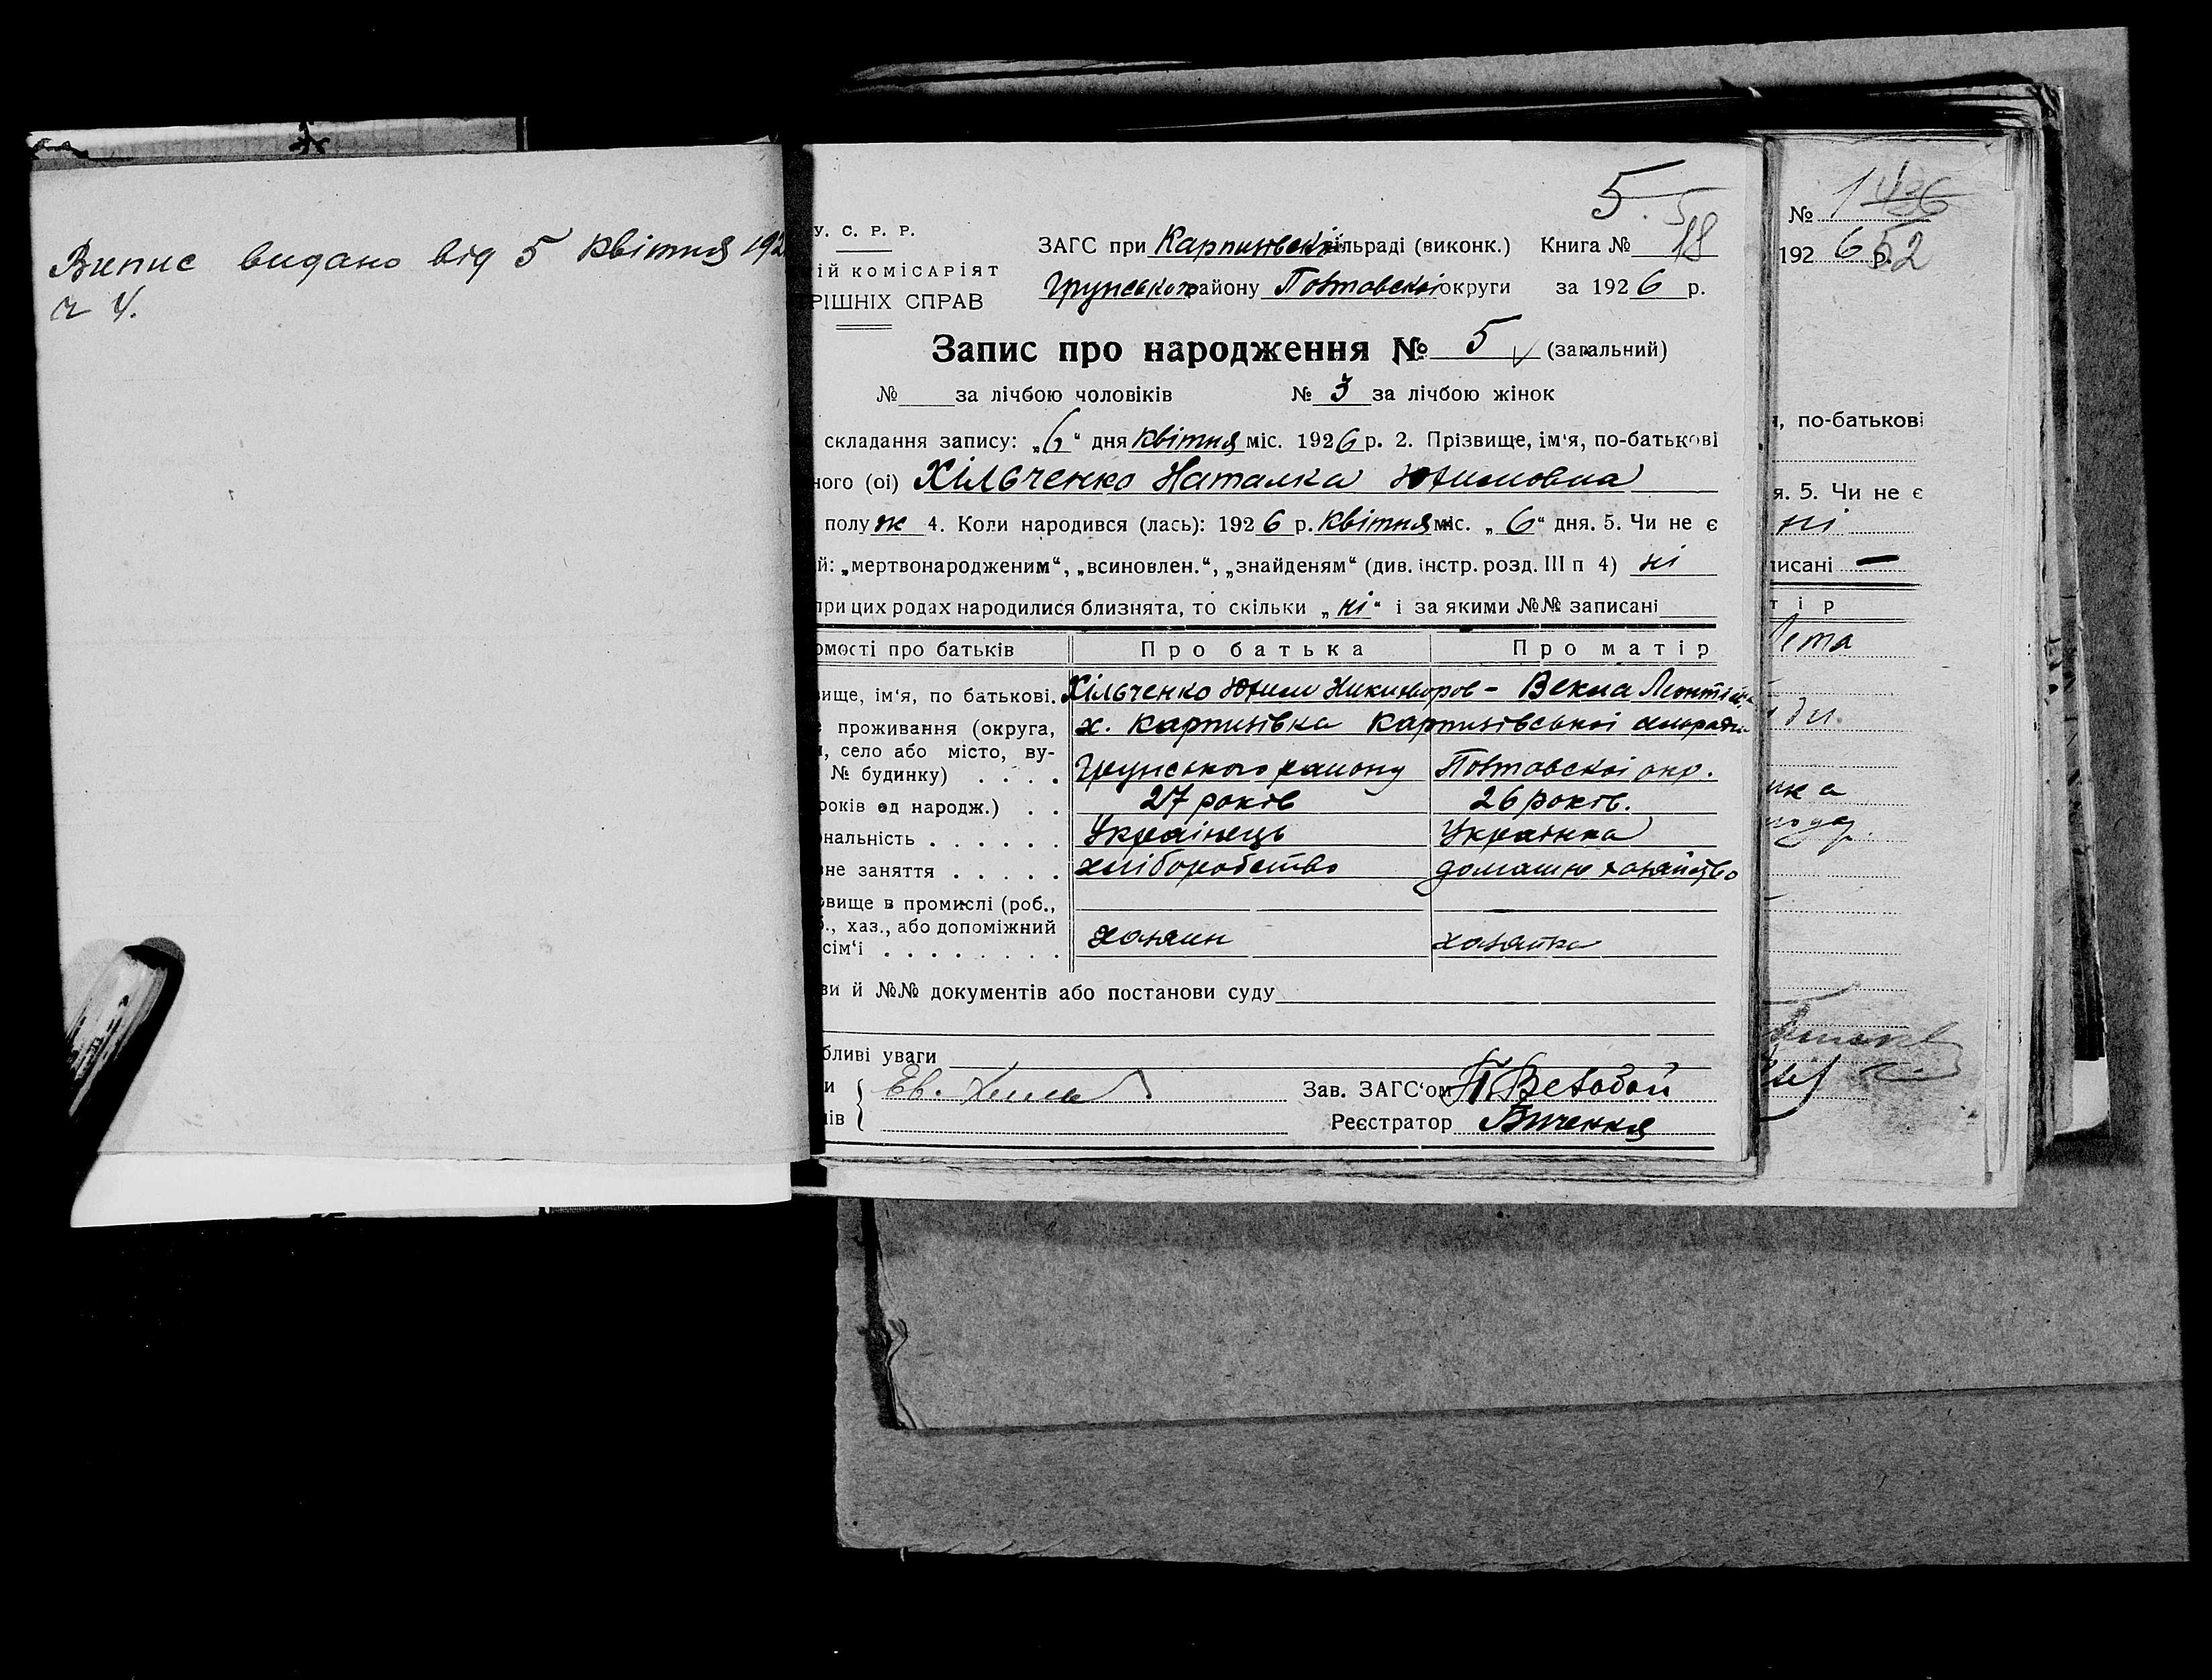 Випис видано від 5 квітня 192
ч 4.
5.
5
18
У. С. Р. Р.
ІЙ КОМІСАРІЯТ
РІШНІХ СПРАВ
ЗАГС при Карпилівській сільраді (виконк.) Книга №
Грунського району Полтавської округи за 1926 р.
Запис про народження № 5 (загальний)
№ за лічбою чоловіків № 3 за лічбою жінок
складання запису: „6" дня квітня міс. 1926 р. 2. Прізвище, ім'я, по-батькові
ного (ої) Хільченко Наталка Юхимовна
полу ж 4. Коли народився (лась): 1926 р. квітня міс. „6" дня. 5. Чи не є
й: „мертвонародженим", „всиновлен.", „знайденям" (див. інстр. розд. III п 4) ні
при цих родах народилися близнята, то скільки „ні" і за якими №№ записані
омості про батьків Про батька Про матір
вище, ім'я, по батькові. Хільченко Юхим Никифоров - Векла Леонтіівн
проживання (округа, х. Карпилівка Карпилівської сільради
, село або місто, ву-
№ будинку) . . . . Грунського району Полтавської окр.
років од народж.) . . 27 років 26 років.
нальність . . . . . . Українець Українка
не заняття . . . . . хліборобство домашнє хазяйство
вище в промислі (роб.,
., хаз., або допоміжний
сім'ї . . . . . . . . хазяин хазяйка
ви й №№ документів або постанови суду
бливі уваги
и Ев. Зав. ЗАГС'ом
ів Реєстратор
№ 1
1926 р.
52
, по-батькові
я. 5. Чи не є
ні
писані —
тір